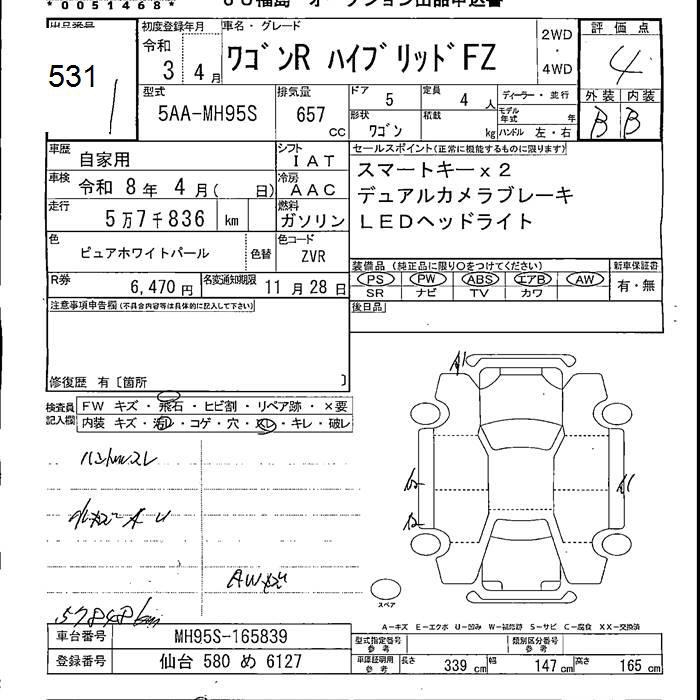 * 0 0 5 1 4 6 8 *
ＪＵ福島 オークション出品申込書
出品番号 531
初度登録年月 令和 3 4月
車名・グレード ワゴンR ハイブリッドFZ
2WD・4WD
評価点 4
型式 5AA-MH95S
排気量 657 CC
ドア 5 定員 4 人
ディーラー・並行
外装 内装
形状 ワゴン 積載 kg
モデル年式 年
ハンドル 左・右
B B
車歴 自家用
シフト IAT
セールスポイント(正常に機能するものに限ります)
車検 令和 8年 4月( 日)
冷房 AAC
スマートキーｘ２
デュアルカメラブレーキ
走行 5万7千836 km
燃料 ガソリン
ＬＥＤヘッドライト
色 ピュアホワイトパール 色替
色コード ZVR
装備品 (純正品に限り○をつけてください)
新車保証書
PS PW ABS エアB AW
有・無
SR ナビ TV カワ
R券 6,470円
名変通知期限 11月28日
後日品
注意事項申告欄(不具合内容等は具体的に記入して下さい)
修復歴 有〔箇所 〕
検査員記入欄
FW キズ・飛石・ヒビ割・リペア跡・×要
内装 キズ・汚レ・コゲ・穴・スレ・キレ・破レ
ハンドルスレ
A1
A1
AWキズ
57848km
スペア
A－キズ E－エクボ U－凹み W－補修跡 S－サビ C－腐食 XX－交換済
車台番号 MH95S-165839
型式指定番号 参考
類別区分番号 参考
登録番号 仙台 580 め 6127
車庫証明用 参考 長さ 339 cm 幅 147 cm 高さ 165 cm